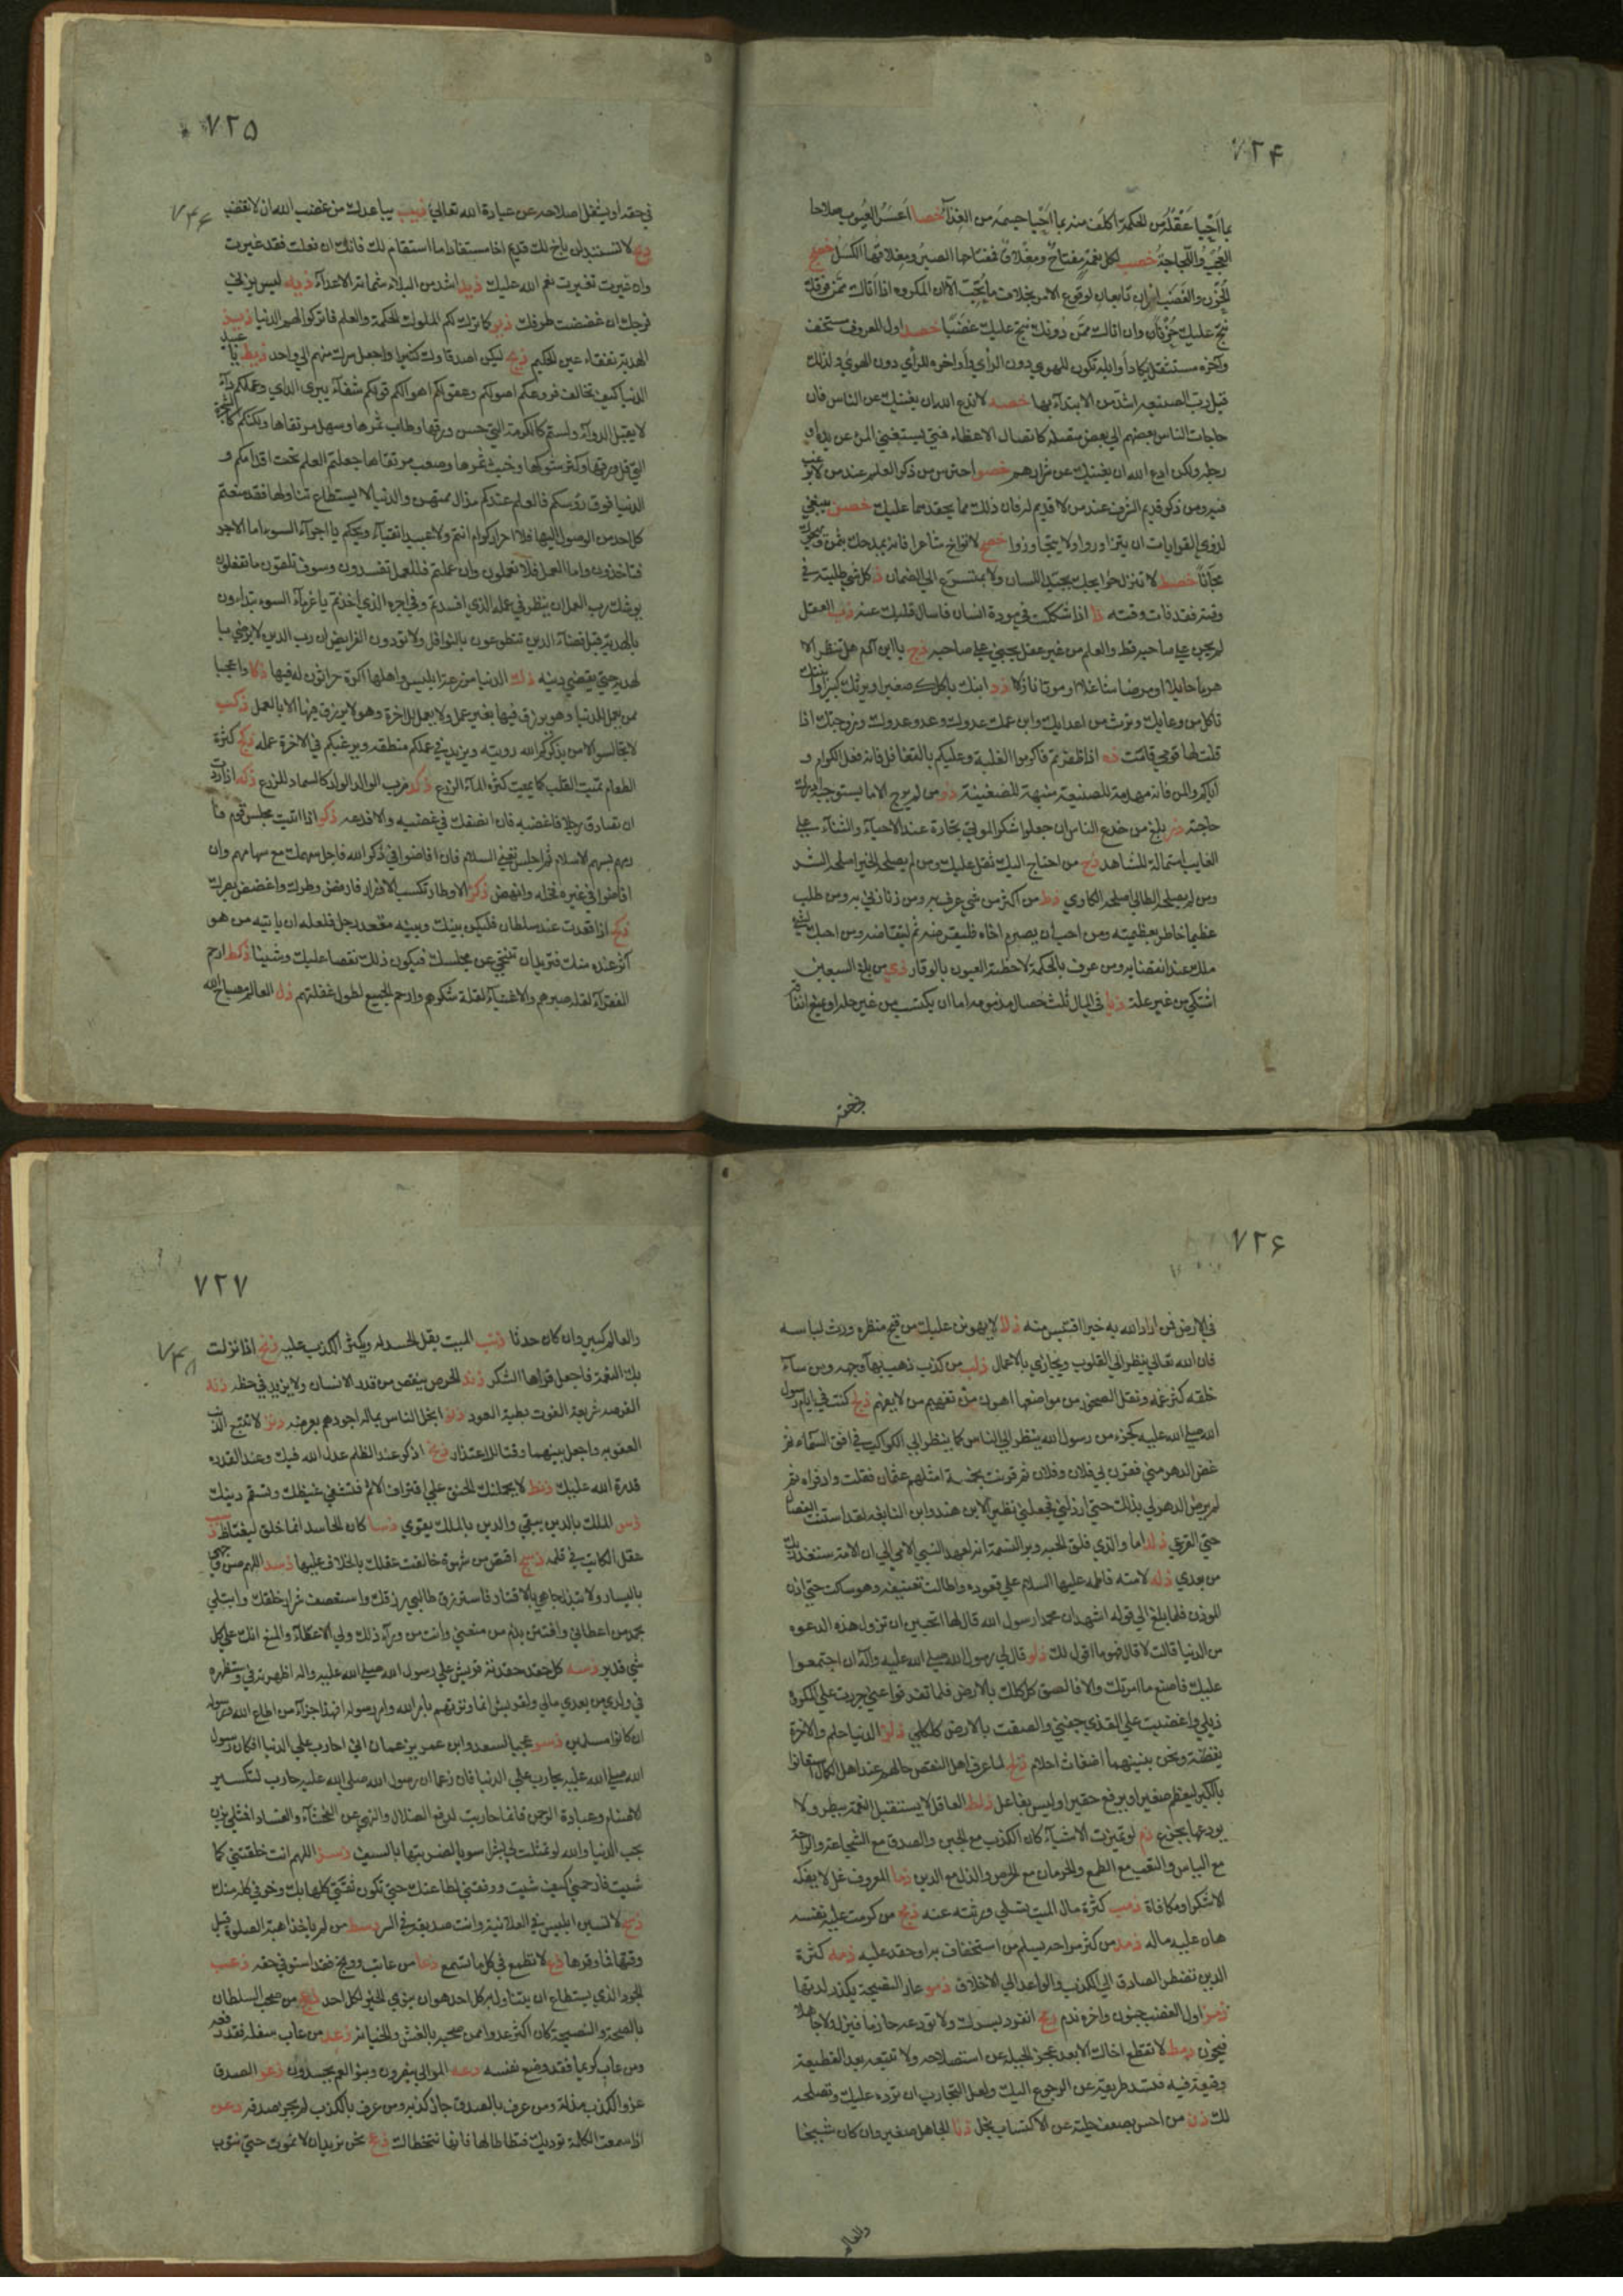 ٧٢۴
بما احيا عقله من الحكمة اكلف منه بما احيا جسمه من الغذآء خصا اعسر العيوب صلاحا
العجب واللجاجة خصب لكل نعمة مفتاح ومغلاق ففتاحها الصبر ومغلاقها الكسل خصج
الحزن والغضب اميران تابعان لوقوع الامر بخلاف ما تحب الا ان المكروه اذا اتاك ممن فوقك
نتج عليك حزنا وان اتاك ممن دونك نتج عليك غضبا خصد اول المعروف مستخف
وآخره مستثقل يكاد اوايله تكون للهوي دون الرأي واواخره للرأي دون الهوي ولذلك
قيل رب الصنيعه اشد من الابتدآء بها خصه لا تدع الله ان يغنيك عن الناس فان
حاجات الناس بعضهم الي بعض متصله كاتصال الاعضاء فمتي يستغني المرء عن يده او
رجله ولكن ادع الله ان يغنيك عن شرارهم خصو احترس من ذكر العلم عند من لا يرغب
فيه ومن ذكر قديم الشرف عند من لا قديم له فان ذلك مما يحقدهما عليك خصز ينبغي
لذوي القرابات ان يتزاوروا ولا يتجاوروا خصح لا تواخ شاعرا فانه يمدحك بثمن ويهجوك
مجانا خصط لا تنزل حوايجك بجيد اللسان ولا بمتسرع الي الضمان ذ كل شي طلبته في
وقته فقد فات وقته ذا اذا شككت في مودة انسان فاسال قلبك عنه ذب العقل
لم يجن علي صاحبه قط والعلم من غير عقل يجني علي صاحبه ذج يا ابن آدم هل تنتظر الا
هرما حايلا او مرضا شاغلا او موتا نازلا ذد ابنك ياكلك صغيرا ويرثك كبيرا وابنتك
تاكل من وعايك وترث من اعدايك وابن عمك عدوك وعدو عدوك وزوجتك اذا
قلت لها قومي قامت ذه اذا ظفرتم فاكرموا الغلبة وعليكم بالتغافل فانه فعل الكرام و
اياكم والمن فانه مهدمة للصنيعة منبهة للضغينة ذو من لم يرج الا ما يستوجبه ادرك
حاجته ذز بلغ من خدع الناس ان جعلوا شكر الموتي تجارة عند الاحياء والثناء علي
الغايب استمالة للشاهد ذح من احتاج اليك ثقل عليك ومن لم يصلحه الخير اصلحه الشر
ومن لم يصلحه الطالي اصلحه الكاوي ذط من اكثر من شي عرف به ومن زنا زني به ومن طلب
عظيما خاطر بعظيمته ومن احب ان يصرم اخاه فليقرضه ثم ليتقاضه ومن احبك لشيء
ملك عند انقضايه ومن عرف بالحكمة لاحظته العيون بالوقار ذي من بلغ السبعين
اشتكي من غير علة ذيا في المال ثلث خصال مذمومه اما ان يكتسب من غير حله او يمنع انفاقه
٧٢۵
٧۴۶
في حقه او يشغل اصلاحه عن عبادة الله تعالي ذيب يباعدك من غضب الله ان لا تغضب
ذيج لا تستبدلن باخ لك قديم اخا مستفادا ما استقام لك فانك ان فعلت فقد غيرت
وان غيرت تغيرت نعم الله عليك ذيد اشد من البلاء شماتة الاعدآء ذيه ليس يزني
فرجك ان غضضت طرفك ذيو كما ترك لكم الملوك الحكمة والعلم فاتركوا لهم الدنيا ذيز
الهدية تفقاء عين الحكيم ذيح ليكن اصدقاوك كثيرا واجعل سرك منهم الي واحد ذيط يا عبيد
الدنيا كيف تخالف فروعكم اصولكم وعقولكم اهواكم قولكم شفآء يبري الداي وعملكم دآء
لا يقبل الدوآء ولستم كالكرمة التي حسن ورقها وطاب ثمرها وسهل مرتقاها ولكنكم كالشجرة
التي قل ورقها وكثر شوكها وخبث ثمرها وصعب مرتقاها جعلتم العلم تحت اقدامكم و
الدنيا فوق رؤسكم فالعلم عندكم مذال ممتهن والدنيا لا يستطاع تناولها فقد منعتم
كل احد من الوصول اليها فلا احرار كرام انتم ولا عبيد اتقيآء ويحكم يا اجرآء السوء اما الاجر
فتاخذون واما العمل فلا تعملون وان عملتم فللعمل تفسدون وسوف تلقون ما تفعلون
يوشك رب العمل ان ينظر في عمله الذي افسدتم وفي اجره الذي اخذتم يا غرمآء السوء تبداءون
بالهدية قبل قضآء الدين تتطوعون بالنوافل ولا تودون الفرايض ان رب الدين لا يرضي با
لهدية حتي يقضي دينه ذك الدنيا مزرعة ابليس واهلها اكرة حراثون له فيها ذكا واعجبا
ممن يعمل للدنيا وهو يرزق فيها بغير عمل ولا يعمل للاخرة وهو لا يرزق فيها الا بالعمل ذكب
لا تجالسوا الا من يذكركم الله رويته ويزيد في عملكم منطقه ويرغبكم في الاخرة عمله ذكج كثرة
الطعام تميت القلب كما يميت كثرة المآء الزرع ذكد ضرب الوالد الولد كالسماد للزرع ذكه اذا اردت
ان تصادق رجلا فاغضبه فان انصفك في غضبه والا فدعه ذكو اذا اتيت مجلس قوم فا
رمهم بسهم الاسلام ثم اجلس يعني السلام فان افاضوا في ذكر الله فاجل سهمك مع سهامهم وان
افاضوا في غيره فخله وانهض ذكز الاوطار تكسب الاوزار فارفض وطرك واغضض بصرك
ذكح اذا قعدت عند سلطان فليكن بينك وبينه مقعد رجل فلعله ان ياتيه من هو
آثر عنده منك فتريد ان تتنحي عن مجلسك فيكون ذلك نقصا عليك وشينا ذكط ارحم
الفقرآء لقلة صبرهم والاغنيآء لقلة شكرهم وارحم الجميع لطول غفلتهم ذل العالم مصباح الله
٧٢۶
في الارض فمن اراد الله به خيرا اقتبس منه ذلا لا يهونن عليك من قبح منظره ورث لباسه
فان الله تعالي ينظر الي القلوب ويجازي بالاعمال ذلب من كذب ذهب بهآء وجهه ومن سآء
خلقه كثر غمه ونقل الصخور من مواضعها اهون من تفهيم من لا يفهم ذلج كنت في ايام رسول
الله صلي الله عليه كجزء من رسول الله ينظر الي الناس كما ينظر الي الكواكب في افق السمآء ثم
غض الدهر مني فقرن بي فلان وفلان ثم قرنت بخمسة امثلهم عثمان فقلت واذفراه ثم
لم يرض الدهر لي بذلك حتي ارذلني فجعلني نظيرا لابن هند وابن النابغه لقد استنت الفصال
حتي القرعي ذلد اما والذي فلق الحبه وبرا النسمة انه لعهد النبي الامي الي ان الامة ستغدر بك
من بعدي ذله لامته فاطمه عليها السلام علي قعوده واطالت تعنيفه وهو ساكت حتي اذن
الموذن فلما بلغ الي قوله اشهد ان محمدا رسول الله قال لها اتحبين ان تزول هذه الدعوه
من الدنيا قالت لا قال فهو ما اقول لك ذلو قال لي رسول الله صلي الله عليه وآله ان اجتمعوا
عليك فاصنع ما امرتك والا فالصق كلكلك بالارض فلما تفرقوا عني جررت علي المكروه
ذيلي واغضيت علي القذي جفني والصقت بالارض كلكلي ذلز الدنيا حلم والاخرة
يقظة ونحن بينهما اضغاث احلام ذلح لما عرف اهل النقص حالهم عند اهل الكمال استعانوا
بالكبر ليعظم صغيرا ويرفع حقيرا وليس بفاعل ذلط العاقل لا يستقبل النعمة ببطر ولا
يودعها بجزع ذم لو تميزت الاشيآء كان الكذب مع الجبن والصدق مع الشجاعة والراحة
مع الياس والتعب مع الطمع والحرمان مع الحرص والذل مع الدين ذما المعروف غل لا يفكه
الا شكر او مكافاة ذمب كثرة مال الميت يسلي ورثته عنه ذمج من كرمت عليه نفسه
هان عليه ماله ذمد من كثر مزاحه لم يسلم من استخفاف به او حقد عليه ذمه كثرة
الدين تضطر الصادق الي الكذب والواعد الي الاخلاف ذمو عار النصيحة يكدر لذتها
ذمز اول الغضب جنون واخره ندم ذمح انفرد بسرك ولا تودعه حازما فيزل ولا جاهلا
فيخون ذمط لا تقطع اخاك الا بعد عجز الحيلة عن استصلاحه ولا تتبعه بعد القطيعة
وقيعة فيه فتسد طريقه عن الرجوع اليك ولعل التجارب ان ترده عليك وتصلحه
لك ذن من احس بضعف حيلته عن الاكتساب بخل ذنا الجاهل صغير وان كان شيخا
والعالم
٧٢٧
٧۴٨
والعالم كبير وان كان حدثا ذنب الميت يقل الحسد له ويكثر الكذب عليه ذنج اذا نزلت
بك النعمة فاجعل قراها الشكر ذند الحرص ينقص من قدر الانسان ولا يزيد في حظه ذنه
الفرصه سريعة الفوت بطية العود ذنو ابخل الناس بماله اجودهم بعرضه ذنز لا تتبع الذنب
العقوبه واجعل بينهما وقتا للاعتذار ذنح اذكر عند الظلم عدل الله فيك وعند القدره
قدرة الله عليك ذنط لا يحملنك الحنق علي اقتراف الاثم فتشفي غيظك وتسقم دينك
ذس الملك بالدين يبقي والدين بالملك يقوي ذسا كان الحاسد انما خلق ليغتاظ ذسب
عقل الكاتب في قلمه ذسج اقتص من شهوة خالفت عقلك بالخلاف عليها ذسد اللهم صن وجهي
باليسار ولا تبذل جاهي بالاقتار فاسترزق طالبي رزقك واستعطف شرار خلقك وابتلي
بحمد من اعطاني وافتتن بذم من منعني وانت من ورآء ذلك ولي الاعطآء والمنع انك علي كل
شي قدير ذسه كل حقد حقدته قريش علي رسول الله صلي الله عليه واله اظهرته في وستظهره
في ولدي من بعدي مالي ولقريش انما وترتهم بامر الله وامر رسوله افهذا جزآء من اطاع الله ورسوله
ان كانوا مسلمين ذسو عجبا لسعد وابن عمر يزعمان اني احارب علي الدنيا افكان رسول
الله صلي الله عليه يحارب علي الدنيا فان زعما ان رسول الله صلي الله عليه حارب لتكسير
الاصنام وعبادة الرحمن فانما حاربت لدفع الضلال والنهي عن الفحشآء والفساد افمثلي يزن
بحب الدنيا والله لو تمثلت لي بشرا سويا لضربتها بالسيف ذسز اللهم انت خلقتني كما
شيت فارحمني كيف شيت ووفقني لطاعتك حتي تكون ثقتي كلها بك وخوفي كله منك
ذسح لا تسبن ابليس في العلانية وانت صديقه في السر ذسط من لم ياخذ اهبة الصلوة قبل
وقتها فما وقرها ذع لا تطمع في كل ما تسمع ذعا من عاتب ووبخ فقد استوفي حقه ذعب
الجود الذي يستطاع ان يتناول به كل احد هو ان ينوي الخير لكل احد ذعج من صحب السلطان
بالصحة والنصيحة كان اكثر عدوا ممن صحبه بالغش والخيانة ذعد من عاب سفلة فقد رفعه
ومن عاب كريما فقد وضع نفسه ذعه الموالي ينصرون وبنو العم يحسدون ذعو الصدق
عز والكذب مذلة ومن عرف بالصدق جاز كذبه ومن عرف بالكذب لم يجز صدقه ذعز
اذا سمعت الكلمة توذيك فتطاطا لها فانها تتخطاك ذعح نحن نريد ان لا نموت حتي نتوب